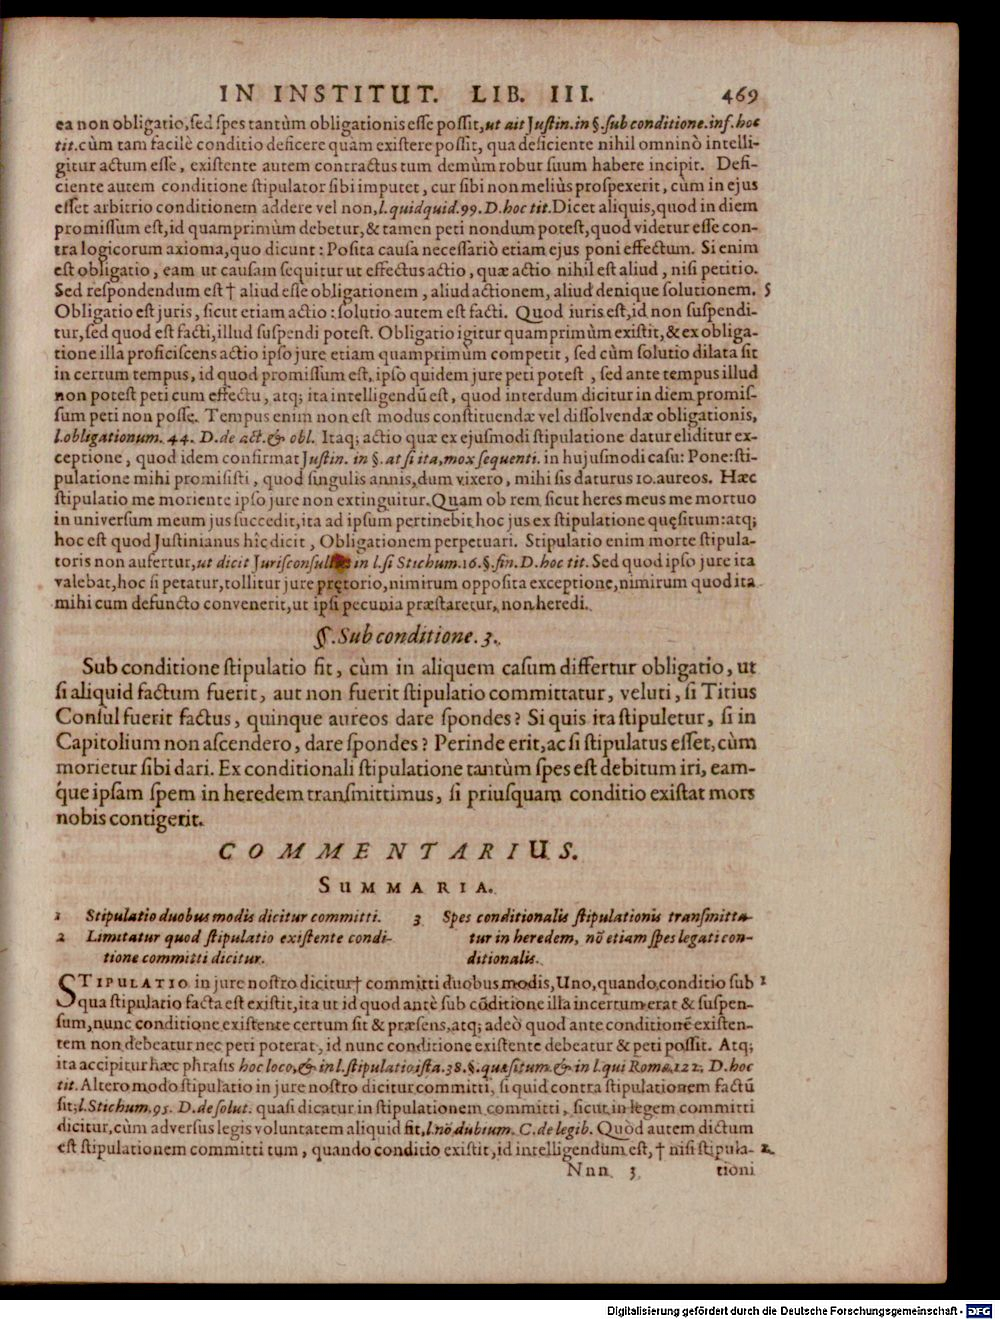 IN INSTITUT. LIB. III. 469
ea non obligatio, sed spes tantùm obligationis esse possit, ut ait Justin. in §. sub conditione. inf. hoc
tit. cùm tam facilè conditio deficere quàm existere possit, qua deficiente nihil omninò intelli-
gitur actum esse, existente autem contractus tum demùm robur suum habere incipit. Defi-
ciente autem conditione stipulator sibi imputet, cur sibi non meliùs prospexerit, cùm in ejus
esset arbitrio conditionem addere vel non, l. quidquid. 99. D. hoc tit. Dicet aliquis, quod in diem
promissum est, id quamprimùm debetur, & tamen peti nondum potest, quod videtur esse con-
tra logicorum axioma, quo dicunt: Posita causa necessariò etiam ejus poni effectum. Si enim
est obligatio, eam ut causam sequitur ut effectus actio, quæ actio nihil est aliud, nisi petitio.
Sed respondendum est † aliud esse obligationem, aliud actionem, aliud denique solutionem. 5
Obligatio est juris, sicut etiam actio: solutio autem est facti. Quod iuris est, id non suspendi-
tur, sed quod est facti, illud suspendi potest. Obligatio igitur quamprimùm existit, & ex obliga-
tione illa proficiscens actio ipso jure etiam quamprimùm competit, sed cùm solutio dilata sit
in certum tempus, id quod promissum est, ipso quidem jure peti potest, sed ante tempus illud
non potest peti cum effectu, atq; ita intelligendũ est, quod interdum dicitur in diem promis-
sum peti non posse. Tempus enim non est modus constituendæ vel dissolvendæ obligationis,
l. obligationum. 44. D. de act. & obl. Itaq; actio quæ ex ejusmodi stipulatione datur eliditur ex-
ceptione, quod idem confirmat Justin. in §. at si ita, mox sequenti. in hujusmodi casu: Pone: sti-
pulatione mihi promisisti, quod singulis annis, dum vixero, mihi sis daturus 10. aureos. Hæc
stipulatio me moriente ipso jure non extinguitur. Quam ob rem sicut heres meus me mortuo
in universum meum jus succedit, ita ad ipsum pertinebit hoc jus ex stipulatione quęsitum: atq;
hoc est quod Justinianus hîc dicit, Obligationem perpetuari. Stipulatio enim morte stipula-
toris non aufertur, ut dicit Jurisconsul in l. si Stichum. 16. §. fin. D. hoc tit. Sed quod ipso jure ita
valebat, hoc si petatur, tollitur jure prętorio, nimirum opposita exceptione, nimirum quod ita
mihi cum defuncto convenerit, ut ipsi pecunia præstaretur, non heredi.
§. Sub conditione. 3.
Sub conditione stipulatio fit, cùm in aliquem casum differtur obligatio, ut
si aliquid factum fuerit, aut non fuerit stipulatio committatur, veluti, si Titius
Consul fuerit factus, quinque aureos dare spondes? Si quis ita stipuletur, si in
Capitolium non ascendero, dare spondes? Perinde erit, ac si stipulatus esset, cùm
morietur sibi dari. Ex conditionali stipulatione tantùm spes est debitum iri, eam-
que ipsam spem in heredem transmittimus, si priusquam conditio existat mors
nobis contigerit.
COMMENTARIUS.
SUMMARIA.
1 Stipulatio duobus modis dicitur committi.
2 Limitatur quod stipulatio existente condi-
tione committi dicitur.
3 Spes conditionalis stipulationis transmitta-
tur in heredem, nõ etiam spes legati con-
ditionalis.
STIPULATIO in jure nostro dicitur † committi duobus modis, Uno, quando conditio sub 1
qua stipulatio facta est existit, ita ut id quod antè sub cõditione illa incertum erat & suspen-
sum, nunc conditione existente certum sit & præsens, atq; adeò quod ante conditionẽ existen-
tem non debeatur nec peti poterat, id nunc conditione existente debeatur & peti possit. Atq;
ita accipitur hæc phrasis hoc loco, & in l. stipulatio ista. 38. §. quæsitum. & in l. qui Romæ. 122. D. hoc
tit. Altero modo stipulatio in jure nostro dicitur committi, si quid contra stipulationem factũ
sit, l. Stichum. 95. D. de solut. quasi dicatur in stipulationem committi, sicut in legem committi
dicitur, cùm adversus legis voluntatem aliquid fit, l. nõ dubium. C. de legib. Quòd autem dictum
est stipulationem committi tum, quando conditio existit, id intelligendum est, † nisi stipula- 2.
Nnn 3 tioni
Digitalisierung gefördert durch die Deutsche Forschungsgemeinschaft - DFG